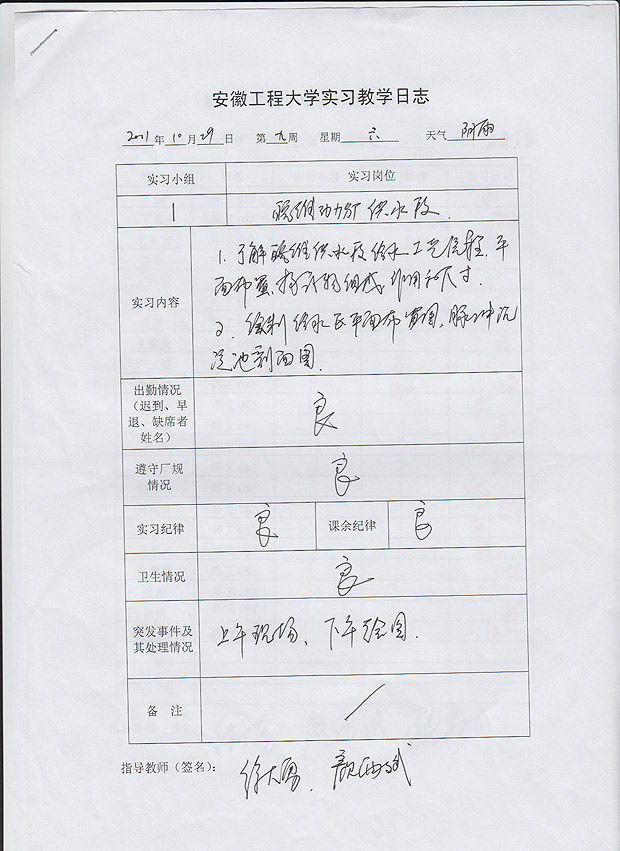 安徽工程大学实习教学日志
2011年10月29日 第九周 星期六 天气 阴雨
实习小组 实习岗位
1 动力厂供水段.
实习内容
1. 了解供水段给水工艺流程、平
面布置、构筑物组成、作用和尺寸.
2. 绘制给水区平面布置图, 脉冲沉
淀池剖面图.
出勤情况
(迟到、早
退、缺席者
姓名)
良
遵守厂规
情况
良
实习纪律 良 课余纪律 良
卫生情况 良
突发事件及
其处理情况
上午现场、下午绘图.
备 注 /
指导教师(签名): 徐大勇、